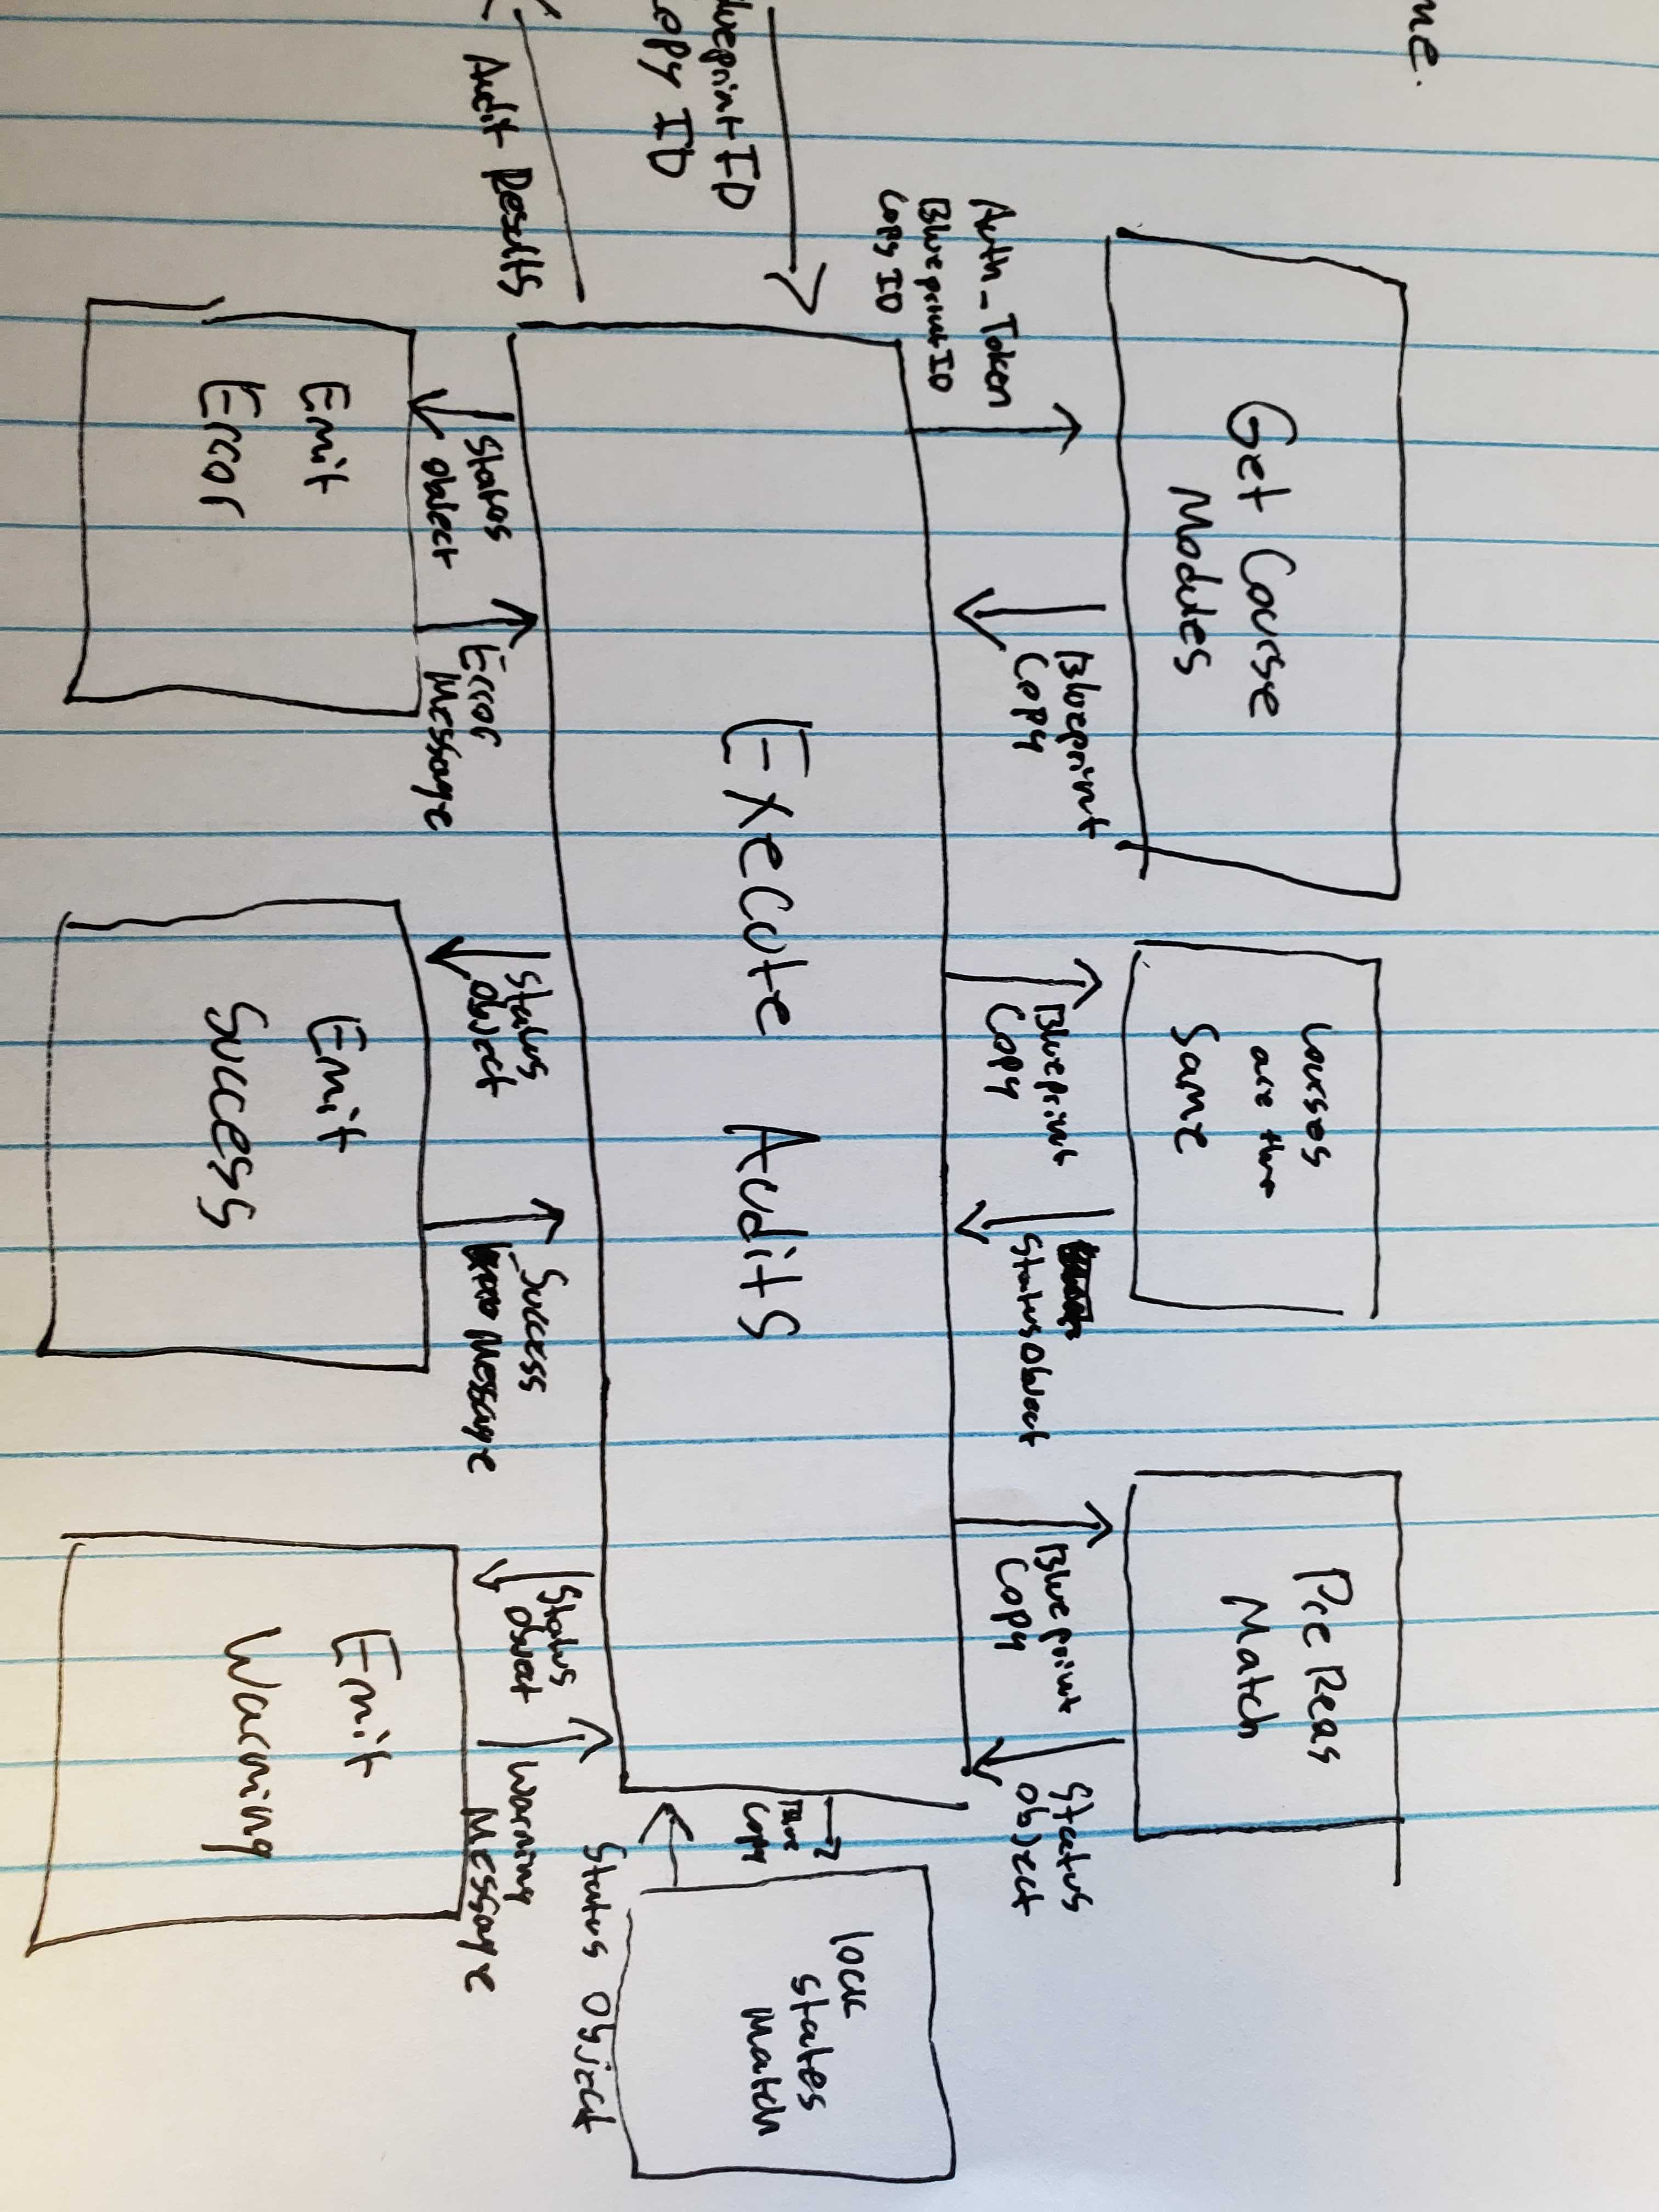 me.
Get Course
Modules
Courses
are the
Same
Pre Reqs
Match
Auth_Token
Blueprint ID
Copy ID
Blueprint
Copy
Blueprint
Copy
Status Object
Blueprint
Copy
Status
Object
Execute Audits
lueprint ID
Copy ID
Audit Results
Blue
Copy
lock
states
Match
Status Object
Status
Object
Error
Message
Status
Object
Success
Message
Status
Object
Warning
Message
Emit
Error
Emit
Success
Emit
Warning